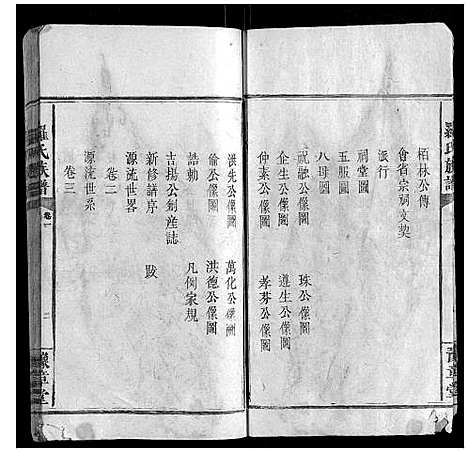 羅氏族譜
豫章堂
栢林公傳
會省宗祠文契
派行
祠堂圖
五服圖
八母圖
祝融公像圖 珠公像圖
企生公像圖 遵生公像圖
仲素公像圖 孝芬公像圖
洪先公像圖 萬化公像圖
倫公像圖 洪德公像圖
誥勅 凡例家規
吉揚公創産誌
新修譜序 跋
卷二
源流世畧
卷三
源流世系
羅氏族譜
卷一
二
豫章堂